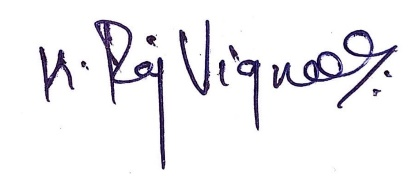 K. Raj Vignesh